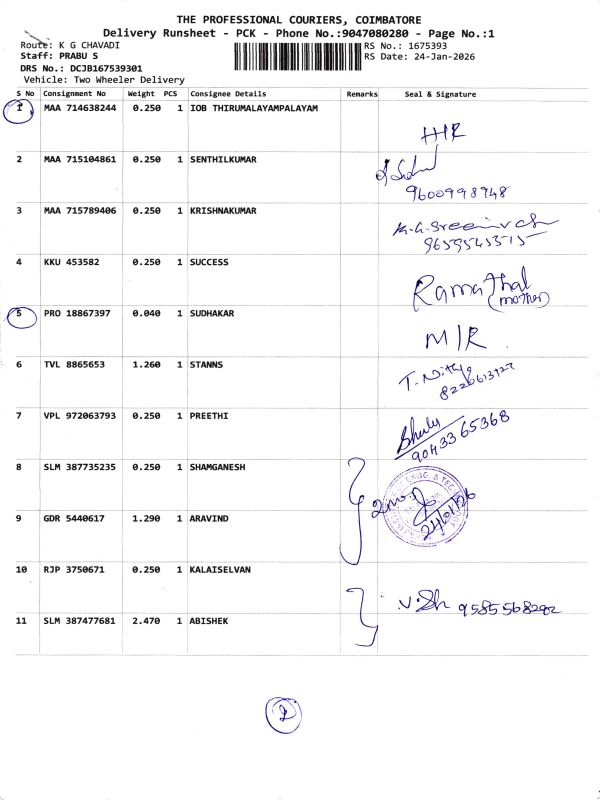 THE PROFESSIONAL COURIERS, COIMBATORE
Delivery Runsheet - PCK - Phone No.:9047080280 - Page No.:1
Route: K G CHAVADI
RS No.: 1675393
Staff: PRABU S
RS Date: 24-Jan-2026
DRS No.: DCJB167539301
Vehicle: Two Wheeler Delivery
S No Consignment No Weight PCS Consignee Details Remarks Seal & Signature
1 MAA 714638244 0.250 1 IOB THIRUMALAYAMPALAYAM
2 MAA 715104861 0.250 1 SENTHILKUMAR
9600998948
3 MAA 715789406 0.250 1 KRISHNAKUMAR
9659545515
4 KKU 453582 0.250 1 SUCCESS
Ramathal
(mother)
5 PRO 18867397 0.040 1 SUDHAKAR
M/R
6 TVL 8865653 1.260 1 STANNS
T. Nithya
7 VPL 972063793 0.250 1 PREETHI
9043365368
8 SLM 387735235 0.250 1 SHAMGANESH
ENGG. & TECH
24/01/26
9 GDR 5440617 1.290 1 ARAVIND
10 RJP 3750671 0.250 1 KALAISELVAN
V.Sh 9585568292
11 SLM 387477681 2.470 1 ABISHEK
2